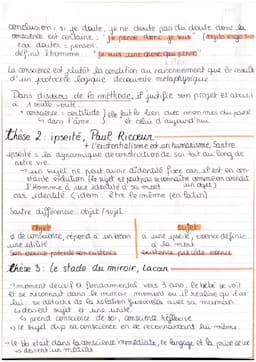 conclusion: si je doute, je ne doute pas du doute donc la
conscience est certaine : je pense donc je suis (cogito ergo sum
car douter = penser.
définit l'homme "je suis une chose qui pense"
La conscience est plutôt la condition au raisonnement que le résultat
d'un protocole logique découverte métaphysique
Dans discours de la méthode, il justifie son projet et accès
à 1 seule vérité.
• conscience = certitude elle fait le lien avec mon moi du passé
↳ dans l'âme à celui d'aujourd'hui
thèse 2: ipseité, Paul Ricoeur
+ l'existentialisme est un humanisme, Sartre
ipseité = la dynamique de construction de soi tout au long de
notre vie.
→ un sujet ne peut avoir d'identité fixe car il est en cons-
tante évolution
l'Homme a une identité à sa mort
car identité (idem : être le même (en latin)
Sartre différencie objet/sujet
objet sujet
∅ de conscience, répond à un besoin a une ipseité, essence définie
une utilité à la mort
Son essence précède son existence existence précède essence
thèse 3: le stade du miroir, Lacan
→ moment décisif et fondamental vers 3 ans, le bébé se voit
et se reconnaît dans le miroir. moment où il réalise qu'il est
lui. se détache de la relation fusionnelle avec sa maman
devient sujet et une unité.
→ prend conscience de soi → conscience réflexive
→ le sujet dvp sa conscience en se reconnaissant lui même.
→ le bb était dans la conscience immédiate, le langage et la prise de
↳ devient un médiat